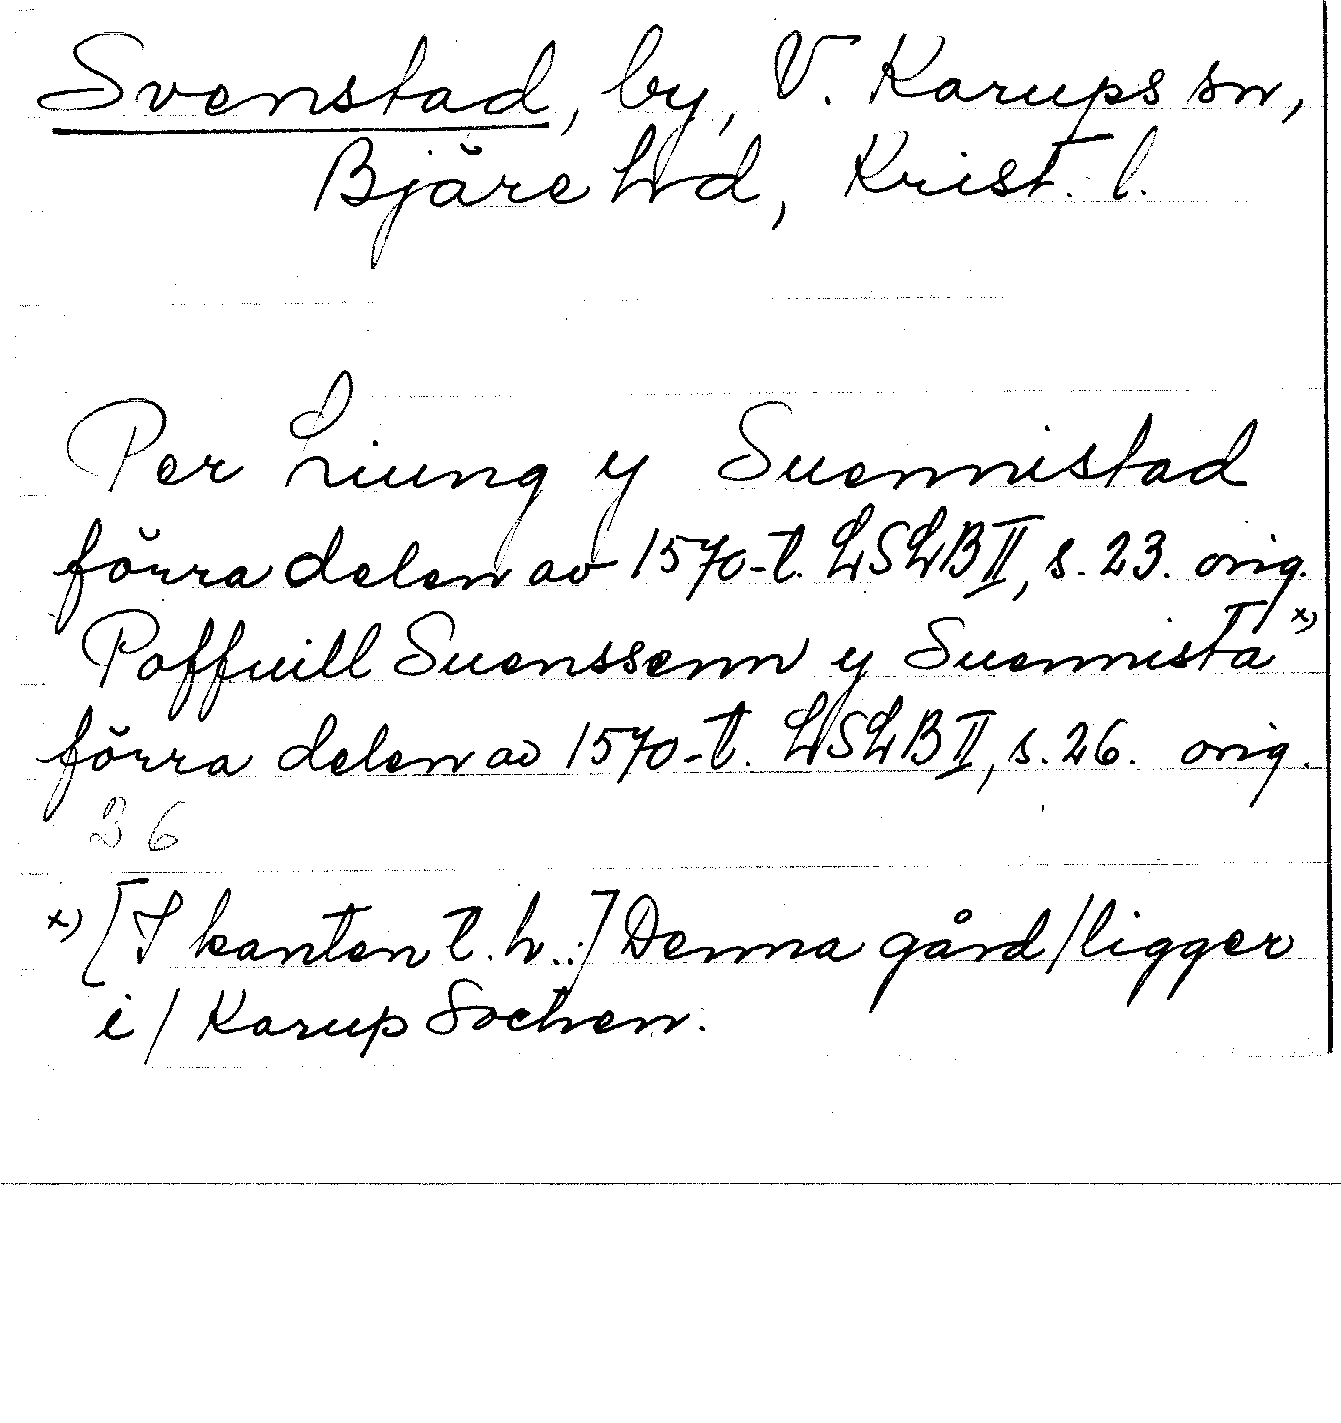 Svenstad, by, V. Karups sn,
Bjäre hd, Krist. l.
Per Liung y Suennistad
förra delen av 1570-t. LSLB II, s. 23. orig.
Poffuill Suenssenn y Suennista x)
förra delen av 1570-t. LSLB II, s. 26. orig.
36
x) [I kanten t. h.:] Denna gård/ligger
i/ Karup Sochen.